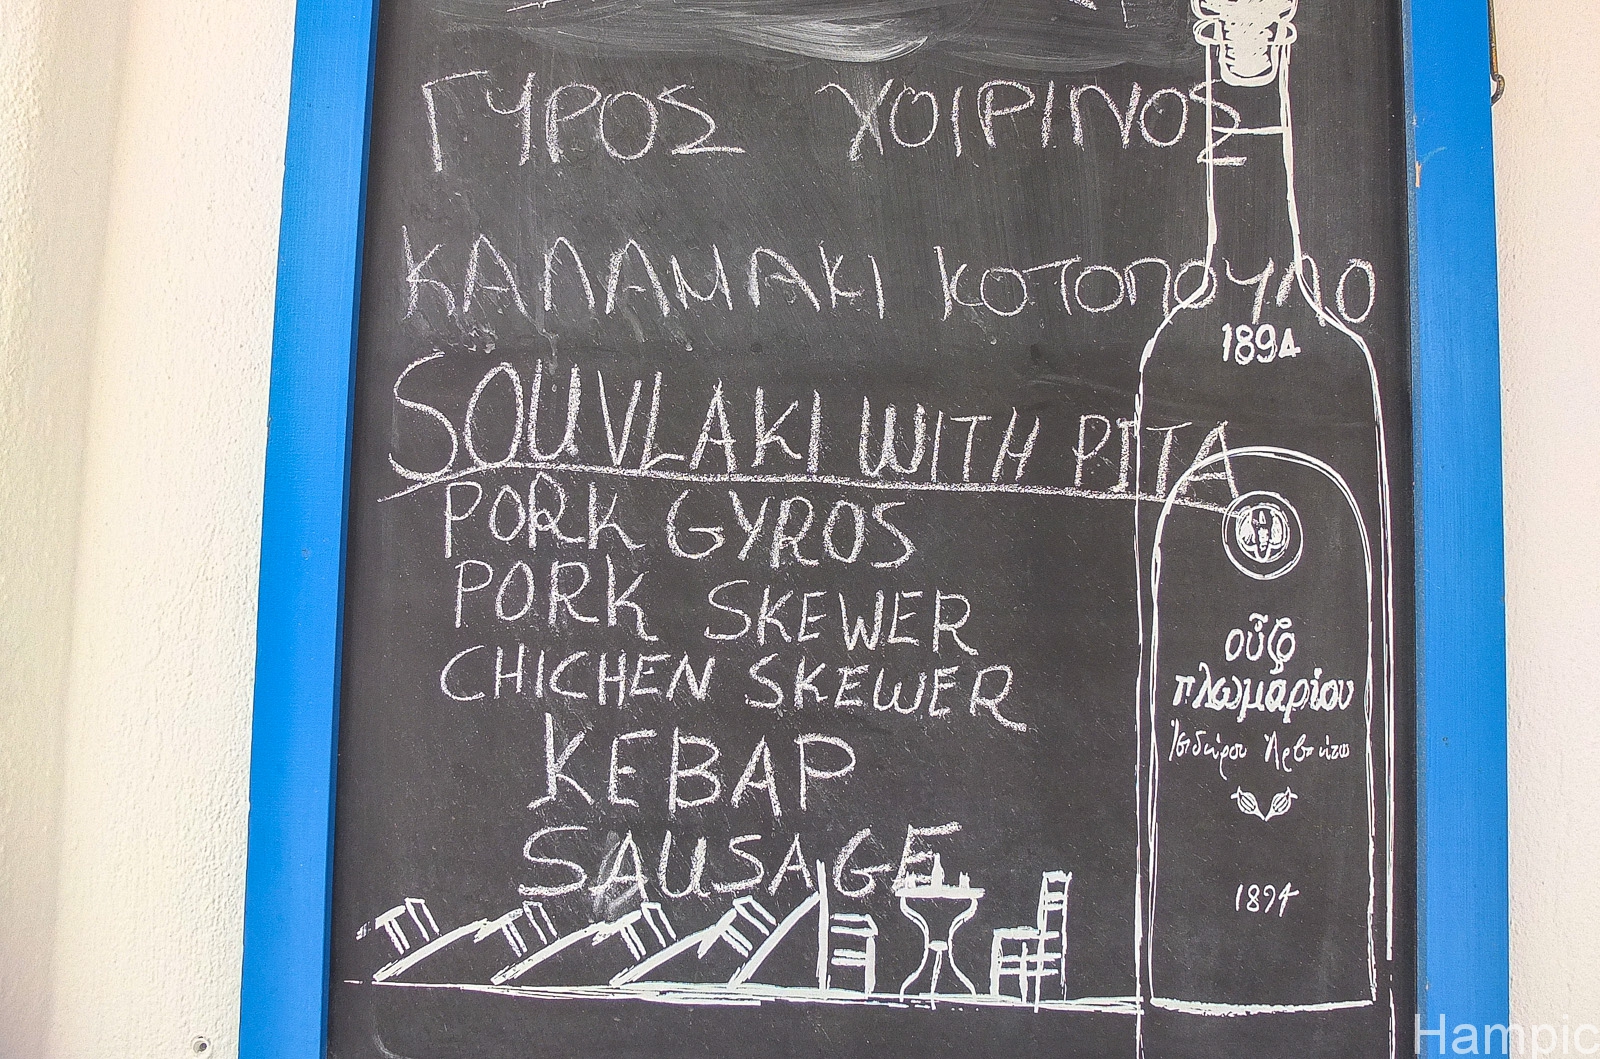 ΓΥΡΟΣ ΧΟΙΡΙΝΟΣ
ΚΑΛΑΜΑΚΙ ΚΟΤΟΠΟΥΛΟ
1894
SOUVLAKI WITH PITA
PORK GYROS
PORK SKEWER
CHICHEN SKEWER
KEBAP
SAUSAGE
οὖζο
πλωμαρίου
Ἰσιδώρου Ἀρβανίτου
1894
Hampic